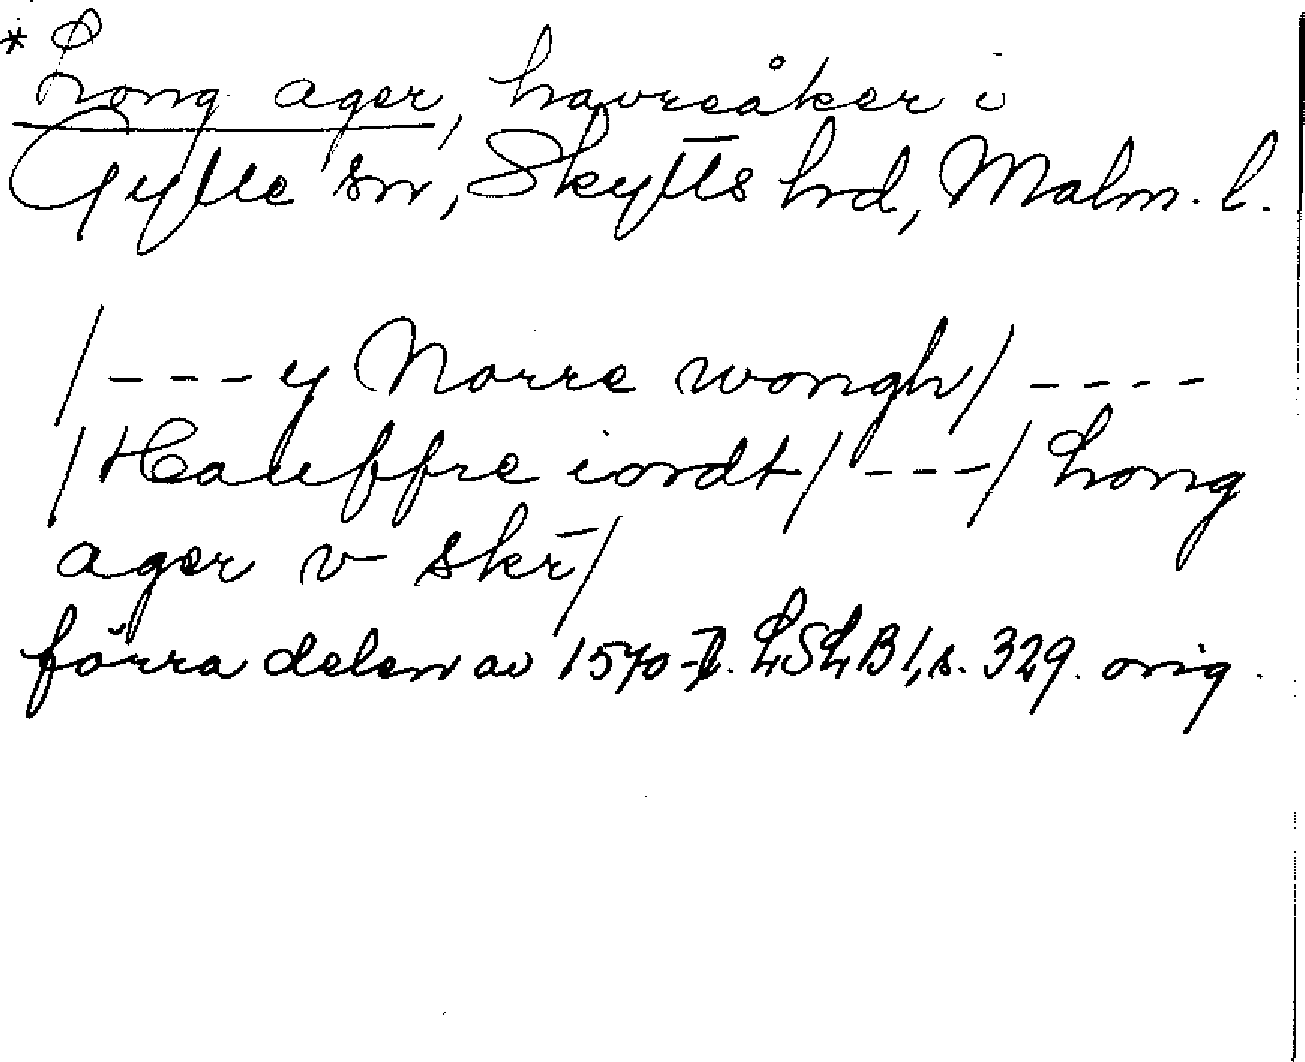 * Long ager, havreåker i
Gylle sn, Skytts hrd, Malm. l.
/---y Norre wongh/ ----
/Hauffre iordt/ ---/ Long
ager v skr̄/
förra delen av 1570-t. LSLB1, s. 329. orig.